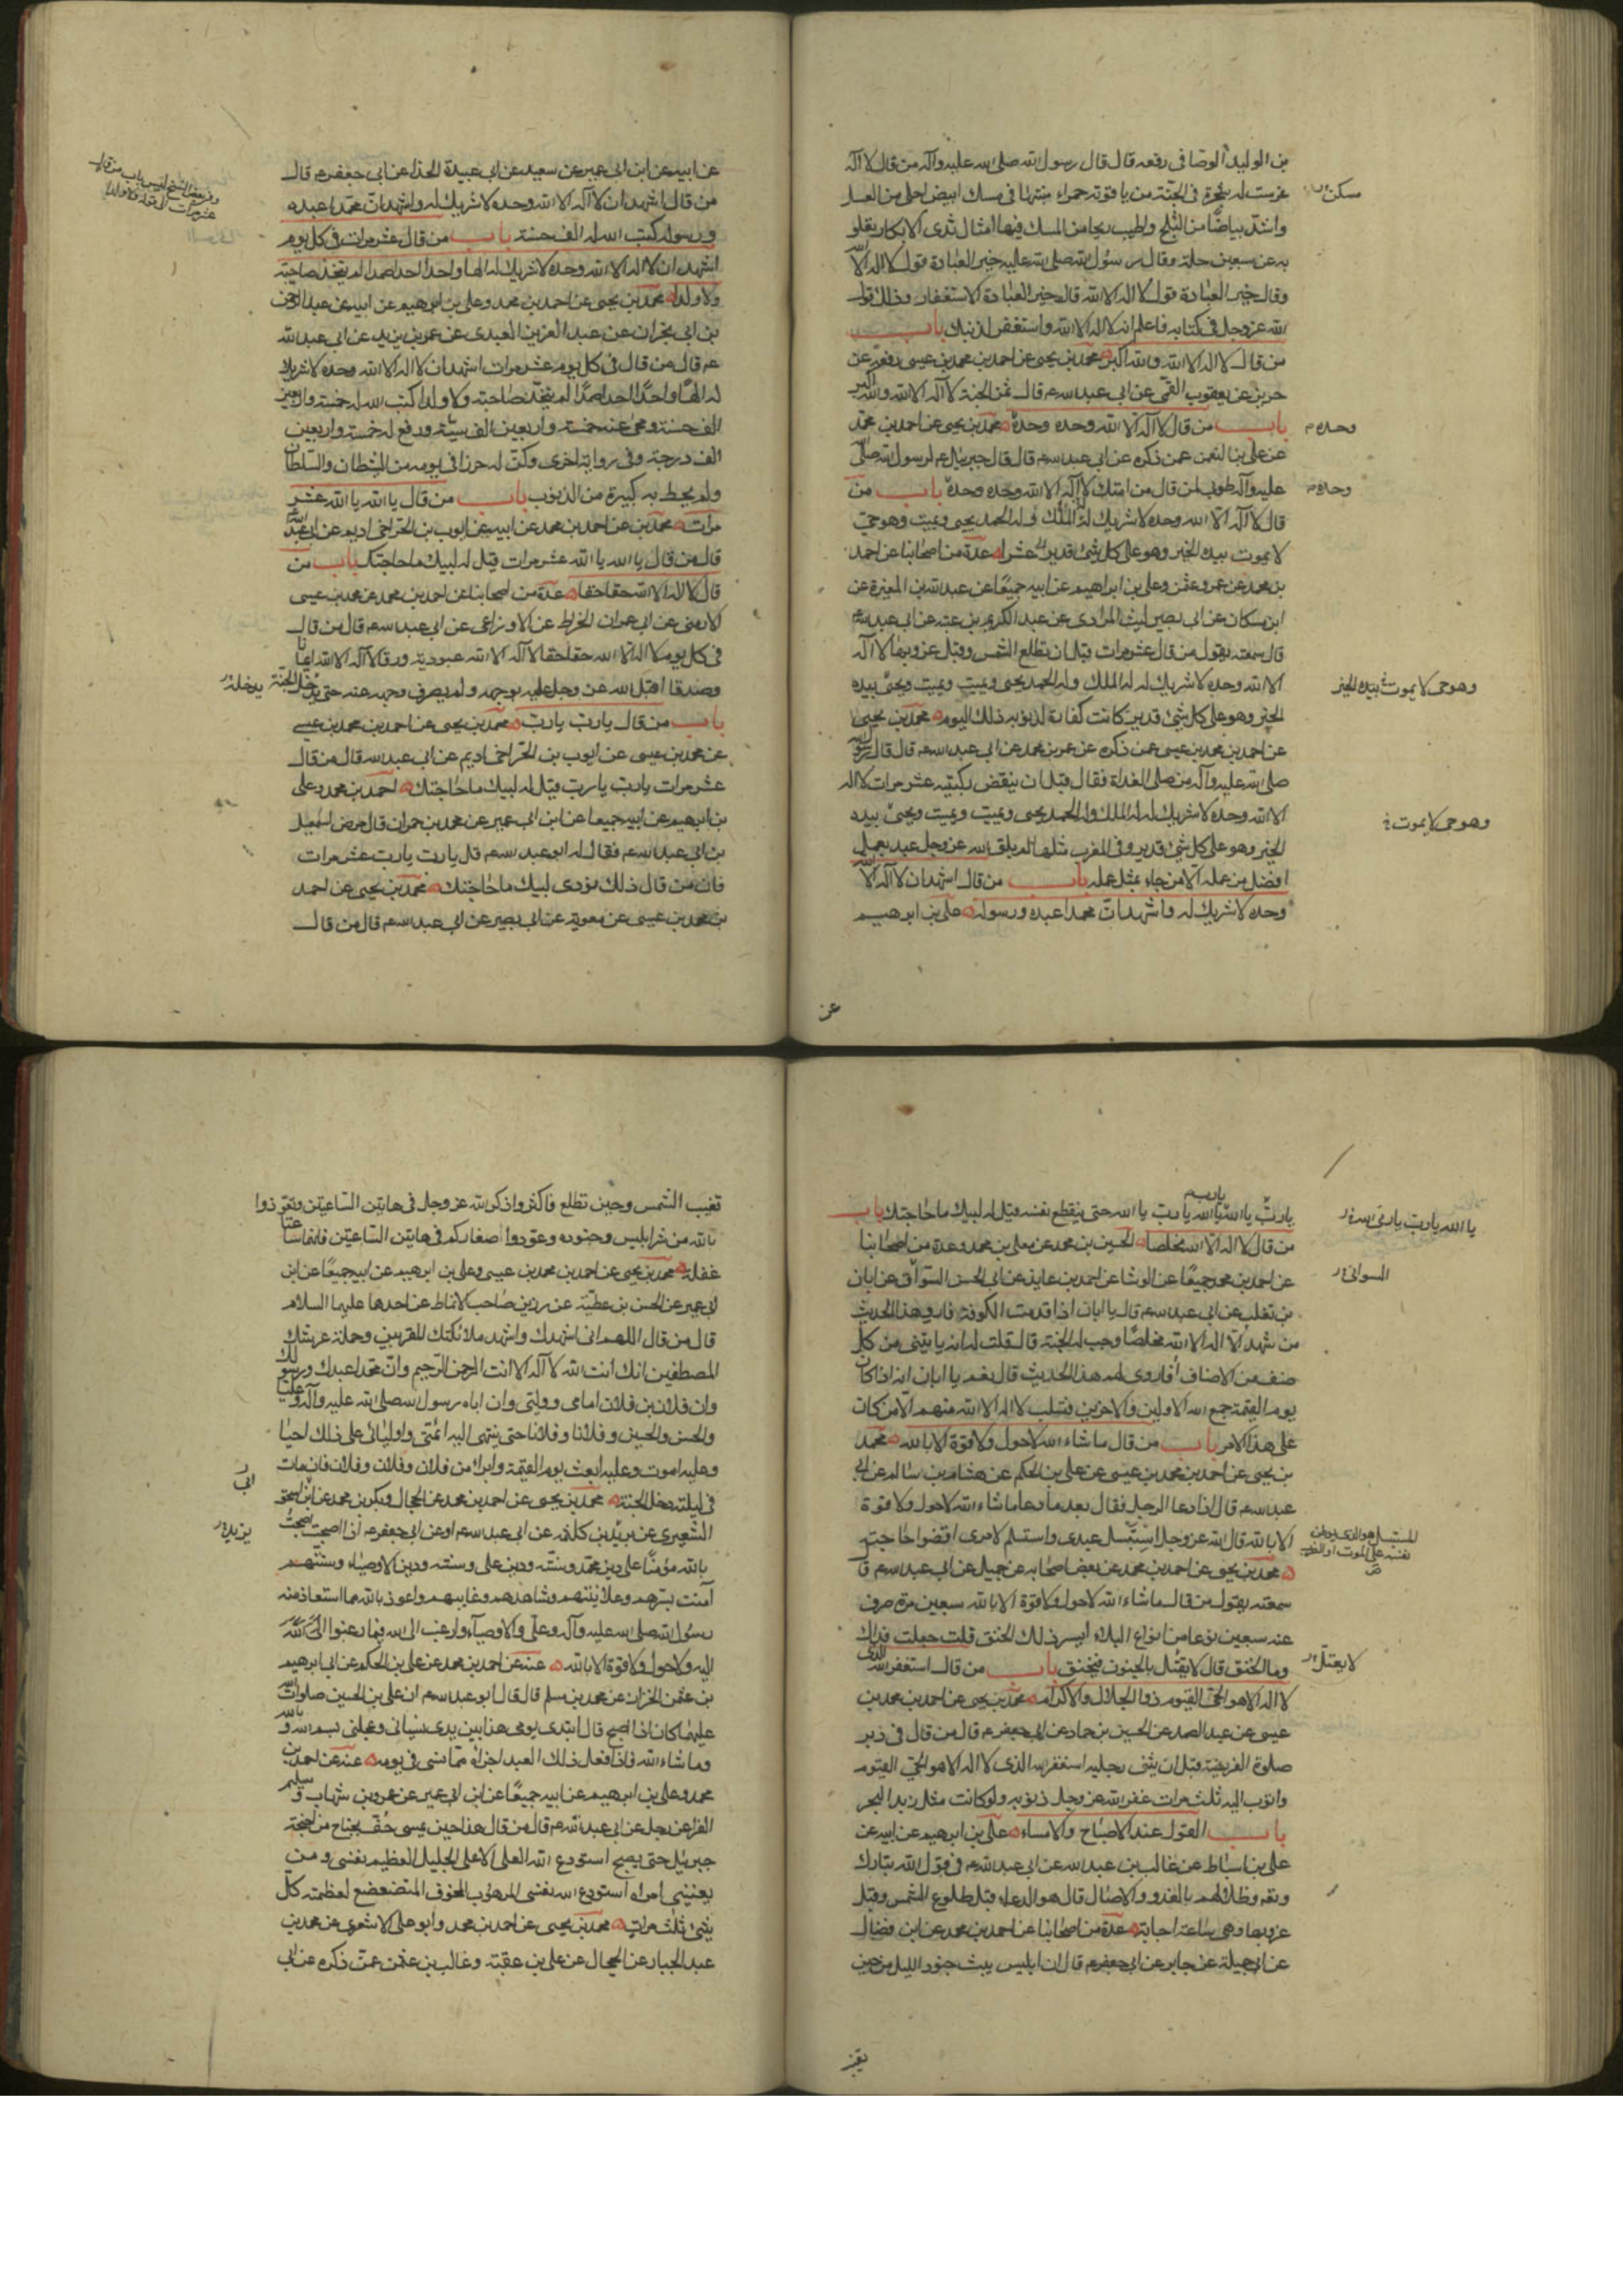 بن الوليد الوصافي رفعه قال قال رسول الله صلى الله عليه وآله من قال لا اله
غرست له شجرة في الجنة من ياقوتة حمراء منبتها في مسك ابيض احلى من العسل
واشد بياضا من الثلج واطيب ريحا من المسك فيها امثال ثدي الابكار يعلو
به عن سبعين حلة وقال رسول الله صلى الله عليه خير العبادة قول لا اله الا الله
وقال خير العبادة قول لا اله الا الله قال خير العبادة الاستغفار وذلك قول
الله عز وجل في كتابه فاعلم انه لا اله الا الله واستغفر لذنبك باب
من قال لا اله الا الله والله اكبر محمد بن يحيى عن احمد بن محمد بن عيسى رفعه عن
حريز عن يعقوب القمي عن ابي عبد الله ع قال ثمن الجنة لا اله الا الله والله اكبر
باب من قال لا اله الا الله وحده وحده محمد بن يحيى عن احمد بن محمد
عن علي بن النعمن عمن ذكره عن ابي عبد الله ع قال قال جبريل ع لرسول الله صلى الله
عليه وآله طوبى لمن قال من امتك لا اله الا الله وحده وحده باب من
قال لا اله الا الله وحده لا شريك له له الملك وله الحمد يحيى ويميت وهو حي
لا يموت بيده الخير وهو على كل شئ قدير عشرا عدة من اصحابنا عن احمد
بن محمد عن عمرو عثمن وعلي بن ابراهيم عن ابيه جميعا عن عبد الله بن المغيرة عن
ابن مسكان عن ابي بصير ليث المرادي عن عبد الكريم بن عتبه عن ابي عبد الله ع
قال سمعته يقول من قال عشر مرات قبل ان تطلع الشمس وقبل غروبها لا اله
الا الله وحده لا شريك له له الملك وله الحمد يحيى ويميت ويميت ويحيى بيده
الخير وهو على كل شئ قدير كانت كفارة لذنوبه ذلك اليوم محمد بن يحيى
عن احمد بن محمد بن عيسى عمن ذكره عن عمر بن محمد عن ابي عبد الله ع قال قال رسول الله
صلى الله عليه وآله من صلى الغداة فقال قبل ان ينقض ركبتيه عشر مرات لا اله
الا الله وحده لا شريك له له الملك وله الحمد يحيى ويميت ويميت ويحيى بيده
الخير وهو على كل شئ قدير وفي المغرب مثلها لم يلق الله عز وجل عبد بعمل
افضل من عمله الا من جاء بمثل عمله باب من قال اشهد ان لا اله الا الله
وحده لا شريك له واشهد ان محمدا عبده ورسوله علي بن ابرهيم
عن
مسكن
وحده
وحده
وهو حي لا يموت بيده الخير
وهو حي لا يموت
عن ابيه عن ابن ابي عمير عن سعيد عن ابي عبيدة الحذاء عن ابي جعفر ع قال
من قال اشهد ان لا اله الا الله وحده لا شريك له واشهد ان محمدا عبده
ورسوله كتب الله له الف حسنة باب من قال عشر مرات في كل يوم
اشهد ان لا اله الا الله وحده لا شريك له الها واحدا احدا صمدا لم يتخذ صاحبة
ولا ولدا محمد بن يحيى عن احمد بن محمد وعلي بن ابرهيم عن ابيه عن عبد الرحمن
بن ابي نجران عن عبد العزيز العبدي عن عمر بن يزيد عن ابي عبد الله
ع قال من قال في كل يوم عشر مرات اشهد ان لا اله الا الله وحده لا شريك
له الها واحدا احدا صمدا لم يتخذ صاحبة ولا ولدا كتب الله له خمسة واربعين
الف حسنة ومحى عنه خمسة واربعين الف سيئة ورفع له خمسة واربعين
الف درجة وفي رواية اخرى وكن له حرزا في يومه من الشيطان والسلطان
ولم يحط به كبيرة من الذنوب باب من قال يا الله يا الله عشر
مرات محمد بن عن احمد بن محمد عن ابيه عن ايوب بن الحر اخي اديم عن ابي عبد الله
قال من قال يا الله يا الله عشر مرات قيل له لبيك ما حاجتك باب من
قال لا اله الا الله حقا حقا عدة من اصحابنا عن احمد بن محمد عن محمد بن عيسى
الارمني عن ابي عمران الخراط عن الاوزاعي عن ابي عبد الله ع قال من قال
في كل يوم لا اله الا الله حقا حقا لا اله الا الله عبودية ورقا لا اله الا الله ايمانا
وصدقا اقبل الله عز وجل عليه بوجهه ولم يصرف وجهه عنه حتى يدخل الجنة
باب من قال يا رب يا رب محمد بن يحيى عن احمد بن محمد بن عيسى
عن محمد بن عيسى عن ايوب بن الحر اخي اديم عن ابي عبد الله قال من قال
عشر مرات يا رب يا رب قيل له لبيك ما حاجتك احمد بن محمد وعلي
بن ابرهيم عن ابيه جميعا عن ابن ابي عمير عن محمد بن حمران قال مرض اسمعيل
بن ابي عبد الله ع فقال له ابو عبد الله ع قل يا رب يا رب عشر مرات
فان من قال ذلك نودي لبيك ما حاجتك محمد بن يحيى عن احمد
بن محمد بن عيسى عن معوية عن ابي بصير عن ابي عبد الله ع قال من قال
يدخله
يا رب يا الله يا الله يا رب يا الله حتى ينقطع نفسه قيل له لبيك ما حاجتك باب
من قال لا اله الا الله مخلصا الحسين بن محمد عن معلى بن محمد وعدة من اصحابنا
عن احمد بن محمد جميعا عن الوشا عن احمد بن عايذ عن ابي الحسن السواق عن ابان
بن تغلب عن ابي عبد الله ع قال يا ابان اذا قدمت الكوفة فارو هذا الحديث
من شهد الا اله الا الله مخلصا وجب له الجنة قال قلت له انه ياتيني من كل
صنف من الاصناف أفاروى لهم هذا الحديث قال نعم يا ابان انه اذا كان
يوم القيمة جمع الله الاولين والاخرين فتسلب لا اله الا الله منهم الا من كان
على هذا الامر باب من قال ما شاء الله لا حول ولا قوة الا بالله محمد
بن يحيى عن احمد بن محمد بن عيسى عن علي بن الحكم عن هشام بن سالم عن ابي
عبد الله ع قال اذا دعا الرجل فقال بعد ما دعا ما شاء الله لا حول ولا قوة
الا بالله قال الله عز وجل استبسل عبدي واستسلم لامري اقضوا حاجته
محمد بن يحيى عن احمد بن محمد عن بعض اصحابه عن جميل عن ابي عبد الله ع قال
سمعته يقول من قال ما شاء الله لا حول ولا قوة الا بالله سبعين مرة صرف
عنه سبعين نوعا من انواع البلاء ايسر ذلك الخنق قلت جعلت فداك
وما الخنق قال لا يقتل بالجنون فيخنق باب من قال استغفر الله الذي
لا اله الا هو الحي القيوم ذو الجلال والاكرام محمد بن يحيى عن احمد بن محمد بن
عيسى عن عبد الصمد عن الحسين بن حماد عن ابي جعفر ع قال من قال في دبر
صلوة الفريضة قبل ان يثنى رجليه استغفر الله الذي لا اله الا هو الحي القيوم
واتوب اليه ثلث مرات غفر الله عز وجل ذنوبه ولو كانت مثل زبد البحر
باب القول عند الاصباح والامساء علي بن ابرهيم عن ابيه عن
علي بن اسباط عن غالب بن عبد الله عن ابي عبد الله ع في قول الله تبارك
وتع وظلالهم بالغدو والاصال قال هو الدعاء قبل طلوع الشمس وقبل
غروبها وهي ساعة اجابة عدة من اصحابنا عن احمد بن محمد عن ابن فضال
عن ابي جميلة عن جابر عن ابي جعفر ع قال ان ابليس يبث جنود الليل من حين
يا الله يا رب يا ربي الله
السواق
لا يعتل
تغيب الشمس وحين تطلع فاكثروا ذكر الله عز وجل في هاتين الساعتين وتعوذوا
بالله من شر ابليس وجنوده وعوذوا صغاركم في هاتين الساعتين فانهما ساعتا
غفلة محمد بن يحيى عن احمد بن محمد بن عيسى وعلي بن ابرهيم عن ابيه جميعا عن ابن
ابي عمير عن الحسن بن عطية عن رزين صاحب الانماط عن احدهما عليهما السلام
قال من قال اللهم اني اشهدك واشهد ملائكتك المقربين وحملة عرشك
المصطفين انك انت الله لا اله الا انت الرحمن الرحيم وان محمدا عبدك ورسولك
وان فلان بن فلان امامي ووليي وان اباه رسول الله صلى الله عليه وآله وعليا
والحسن والحسين وفلانا وفلانا حتى ينتهى اليه ائمتي واوليائي على ذلك احيا
وعليه اموت وعليه ابعث يوم القيمة وابرا من فلان وفلان وفلان فان مات
في ليلته دخل الجنة محمد بن يحيى عن احمد بن محمد عن الحجال وبكر بن محمد عن ابي اسحق
الشعيري عن بريد بن كلثمه عن ابي عبد الله ع او عن ابي جعفر ع اذا اصبحت اصبحت
بالله مؤمنا على دين محمد وسنته ودين علي وسنته ودين الاوصياء وسنتهم
آمنت بسرهم وعلانيتهم وشاهدهم وغايبهم واعوذ بالله مما استعاذ منه
رسول الله صلى الله عليه وآله وعلى والاوصياء وارغب الى الله فيما رغبوا الى الله
اليه ولا حول ولا قوة الا بالله عنه عن احمد بن محمد عن علي بن الحكم عن ابي ابرهيم
بن عثمن الخزاز عن محمد بن مسلم قال قال ابو عبد الله ع ان علي بن الحسين صلوات الله
عليهما كان اذا اصبح قال ابتدى يومى هذا بين يدي نسياني وعجلتي بسم الله
وما شاء الله فاذا فعل ذلك العبد اجزاه مما نسى في يومه عنه عن احمد بن
محمد وعلي بن ابرهيم عن ابيه جميعا عن ابن ابي عمير عن عمر بن شهاب وسليم
الفراء عن رجل عن ابي عبد الله ع قال من قال هذا حين يمسي حف بجناح من اجنحة
جبريل حتى يصبح استودع الله العلى الاعلى الجليل العظيم نفسي ومن
يعنيني امره استودع الله نفسي المرهوب المخوف المتضعضع لعظمته كل
شئ ثلث مرات محمد بن يحيى عن احمد بن محمد وابو علي الاشعري عن محمد بن
عبد الجبار عن الحجال عن علي بن عقبة وغالب بن عثمن عمن ذكره عن ابي
ابي
يزيد